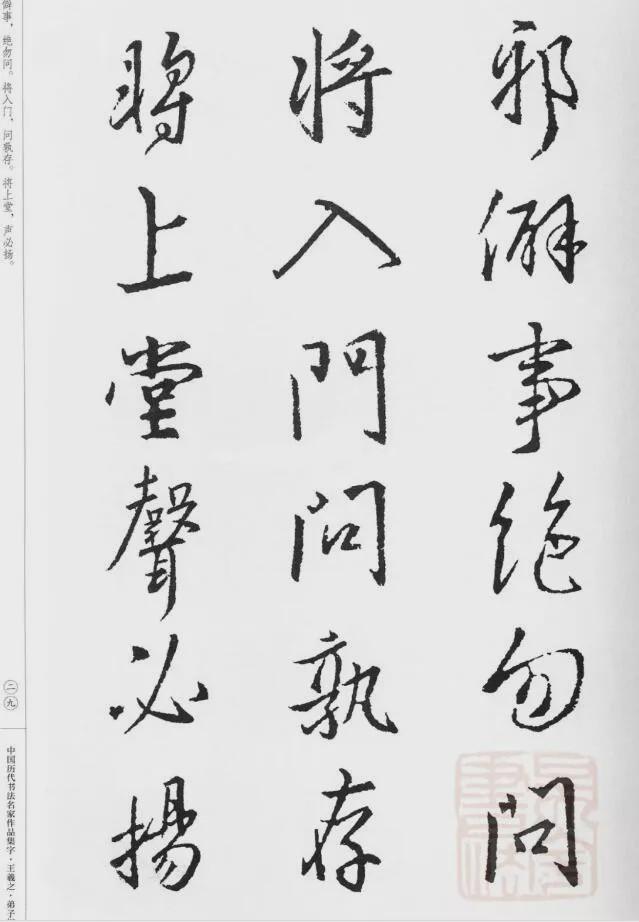 邪僻事絶勿問
将入門問孰存
將上堂聲必揚
僻事，绝勿问。将入门，问孰存。将上堂，声必扬。
二九
中国历代书法名家作品集字·王羲之·弟子